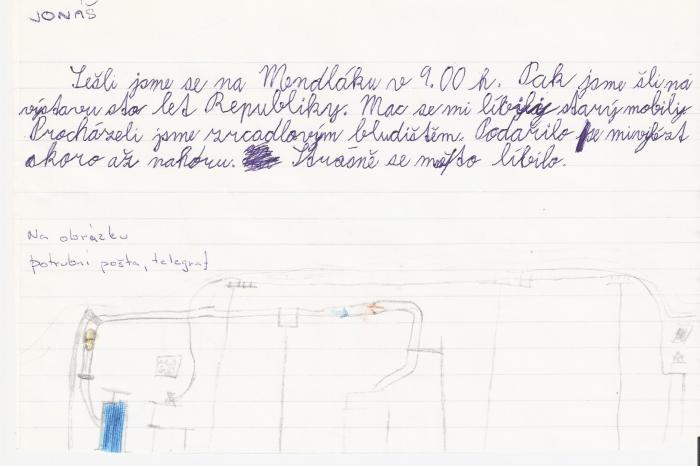 JONÁŠ
Sešli jsme se na Mendláku v 9.00 h. Pak jsme šli na
výstavu sto let Republiky. Moc se mi líbily starý mobily
Procházeli jsme zrcadlovým bludištěm. Podařilo se mi vylézt
skoro až nahóru. Strašně se mě to líbilo.
Na obrázku
potrubní pošta, telegraf